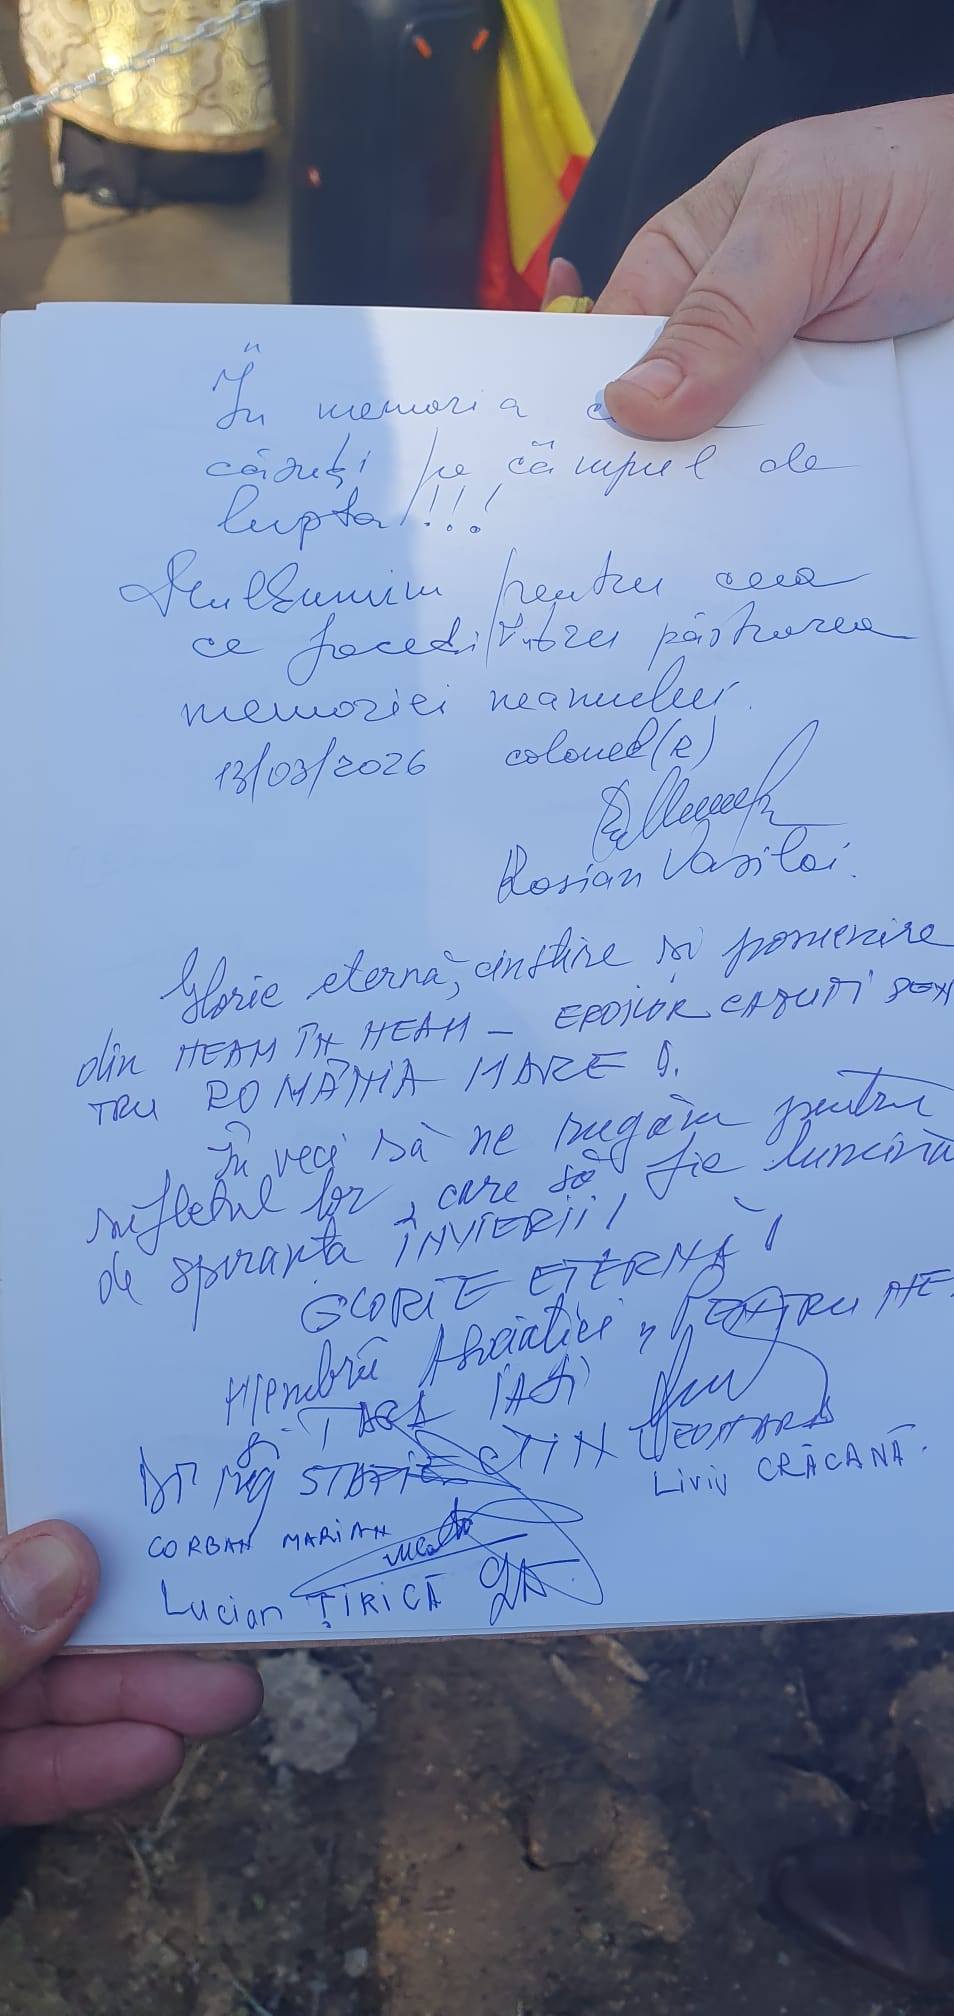 În memoria
căzuți pe câmpul de
lupta!!!
Mulțumim pentru ceea
ce faceți întru păstrarea
memoriei neamului.
13/03/2026 colonel(R)
Rosian Vasiloi.
Glorie eternă, cinstire și pomenire
din NEAM ÎN NEAM - EROILOR CAZUTI PEN
TRU ROMÂNIA MARE!
În veci să ne rugăm pentru
sufletul lor, care să fie luminat
de speranța ÎNVIERII!
GLORIE ETERNĂ!
Membrii Asociatiei "PENTRU NE
IAȘI
CORBAN MARIAN
Liviu CRĂCANĂ.
Lucian ȚIRICĂ